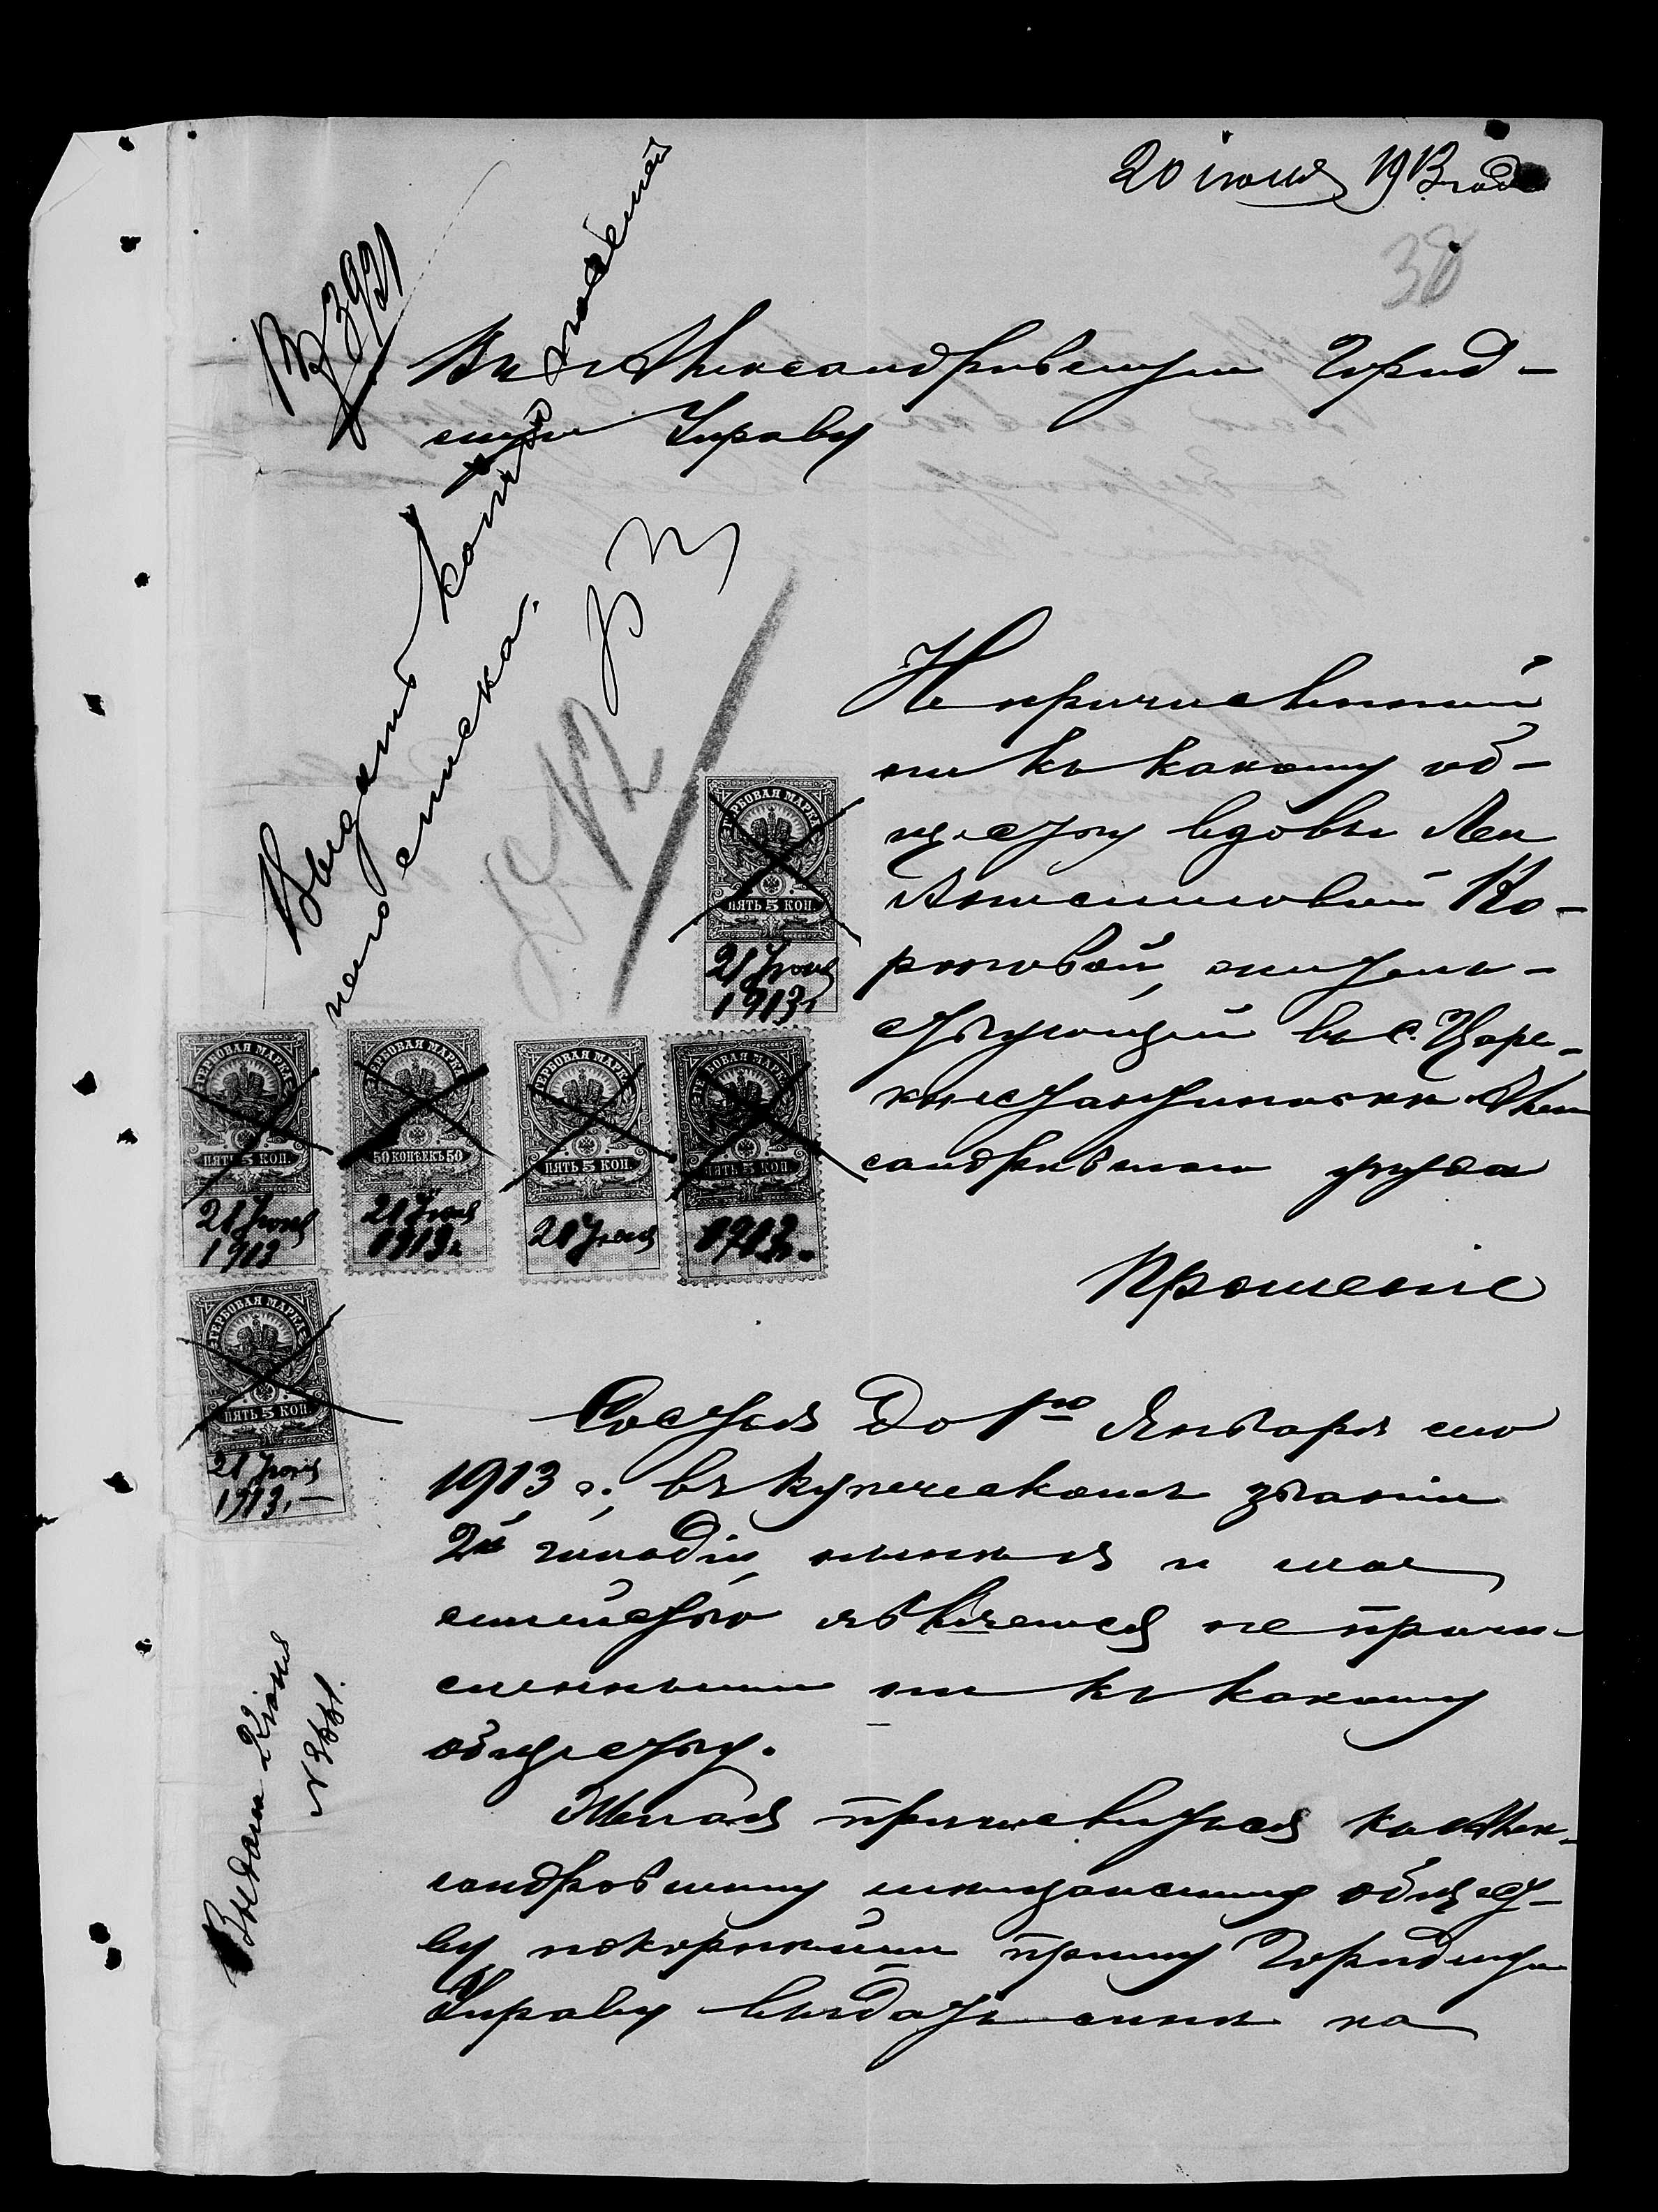 20 іюня 1913 года
38
Вх 3921
Въ Александровскую Город-
скую Управу
Выдать копію посемей
наго списка.
Не причисленной
ни къ какому об-
ществу вдовы Леи
Ко-
роговой, житель-
ствующей въ с. Царе-
константиновкѣ Алек
сандровскаго уѣзда
Прошеніе
Состоя до 1го Января сего
1913 г. въ купеческомъ званіи
2й гильдіи, нынѣ я и мое
семейство являемся не причи-
сленными ни къ какому
обществу.
Желая причислиться къ Алек-
сандровскому мѣщанскому общест-
ву покорнѣйше прошу Городскую
Управу выдать мнѣ на
ГЕРБОВАЯ МАРКА
ПЯТЬ 5 КОП.
21 Іюня
1913 г.
ГЕРБОВАЯ МАРКА
ПЯТЬ 5 КОП.
21 Іюня
1913
ГЕРБОВАЯ МАРКА
50 КОПѢЕКЪ 50
21 Іюня
1913 г.
ГЕРБОВАЯ МАРКА
ПЯТЬ 5 КОП.
21 Іюня
ГЕРБОВАЯ МАРКА
ПЯТЬ 5 КОП.
1913 г.
ГЕРБОВАЯ МАРКА
ПЯТЬ 5 КОП.
21 Іюня
1913.
Выдана 22 Іюня